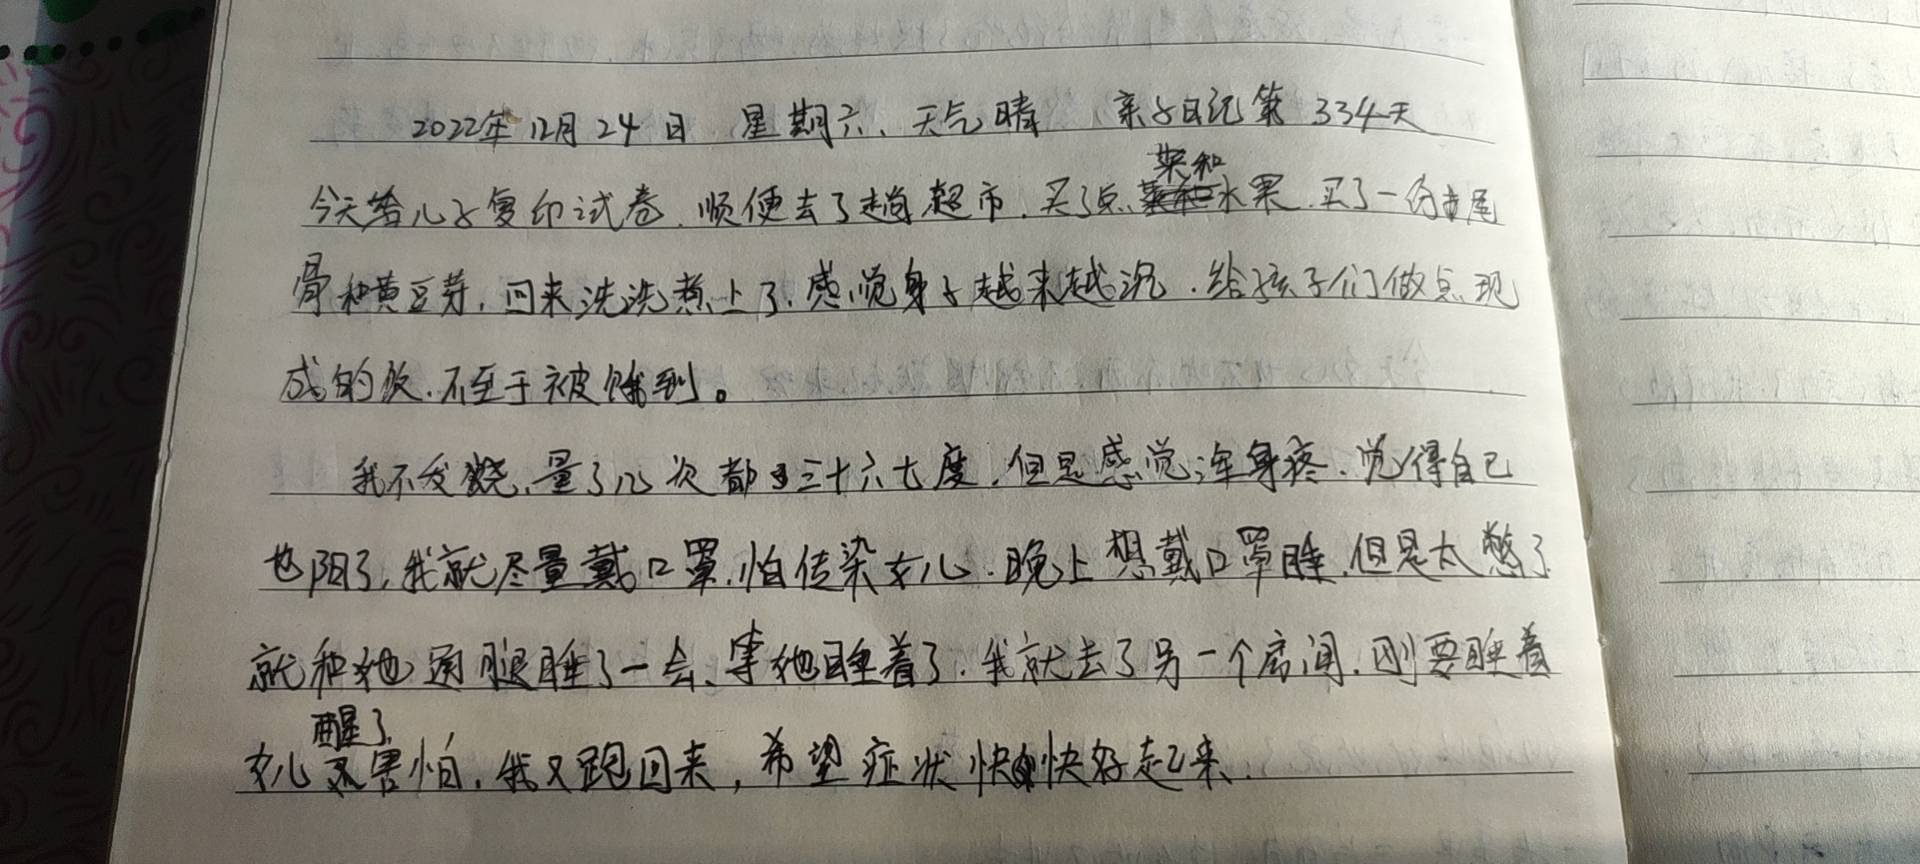 2022年12月24日 星期六、天气晴 亲子日记第334天
今天给儿子复印试卷，顺便去了趟超市，买了点菜和水果，买了一份龙尾
骨和黄豆芽，回来洗洗煮上了，感觉身子越来越沉，给孩子们做点现
成的饭，不至于被饿到。
我不发烧，量了几次都是三十六七度，但是感觉浑身疼，觉得自己
也阳了，我就尽量戴口罩，怕传染女儿，晚上想戴口罩睡，但是太憋了
就和她通腿睡了一会、等她睡着了，我就去了另一个房间，刚要睡着
女儿醒了害怕，我又跑回来，希望症状快快好起来。